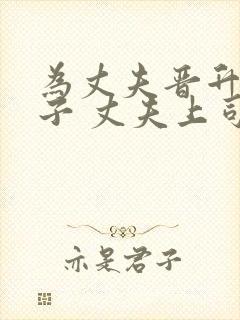 为丈夫晋升
子 丈夫上司
亦是君子